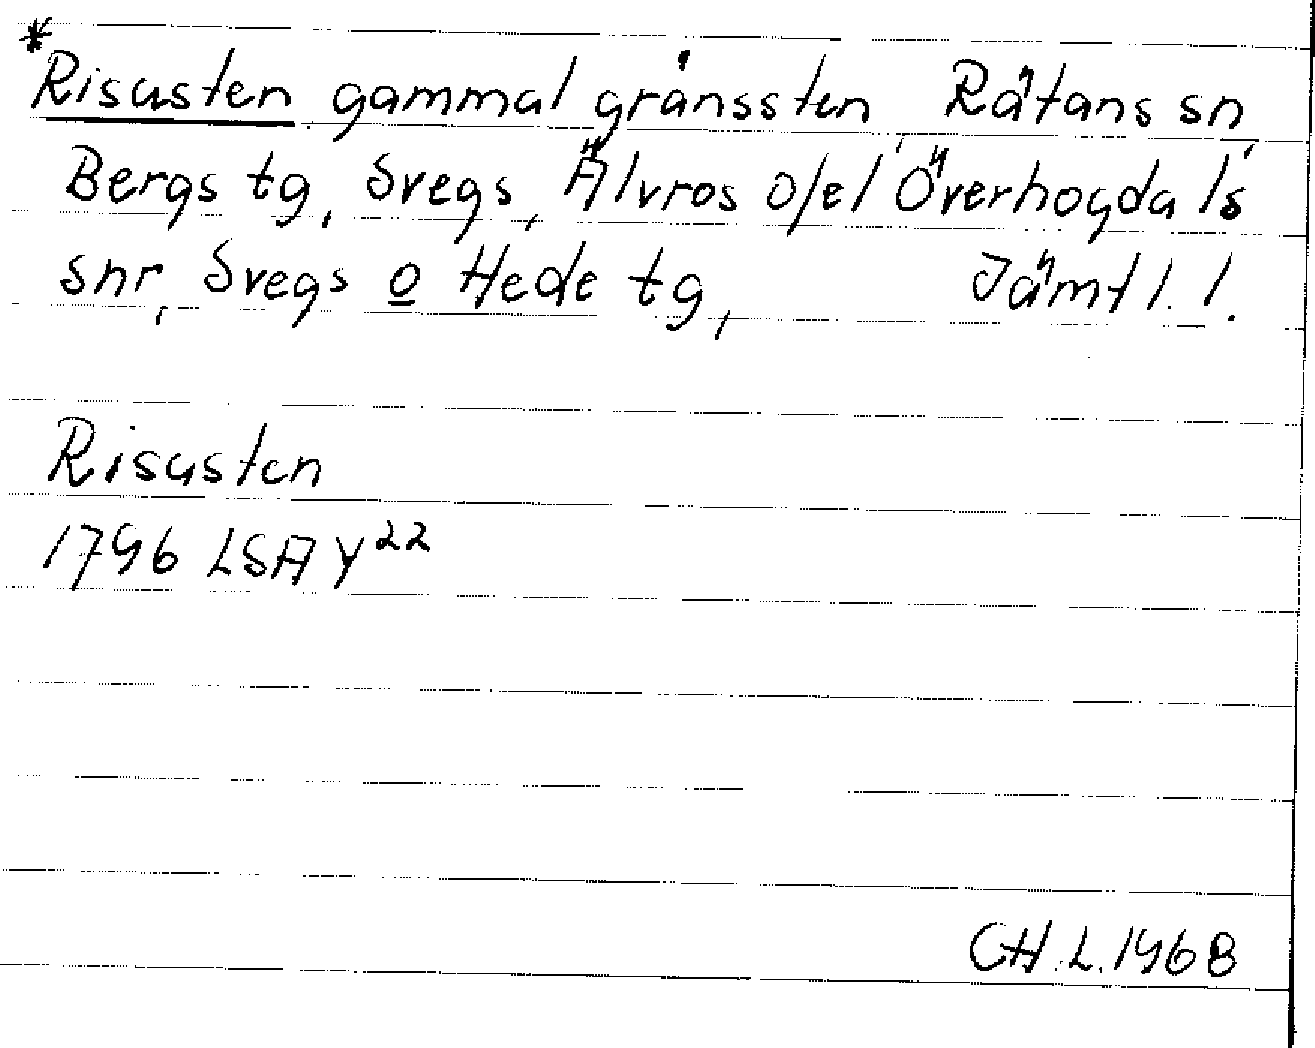 *Risasten gammal gränssten Rätans sn
Bergs tg, Svegs, Älvros o/el Överhogdals
snr, Svegs o Hede tg, Jämtl. l.
Risasten
1796 LSA Y²²
CH. L. 1968